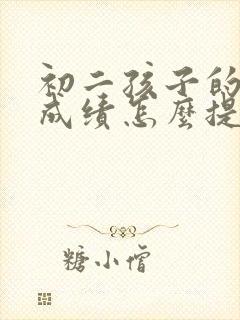 初二孩子的
成绩怎麽提
糖小僧